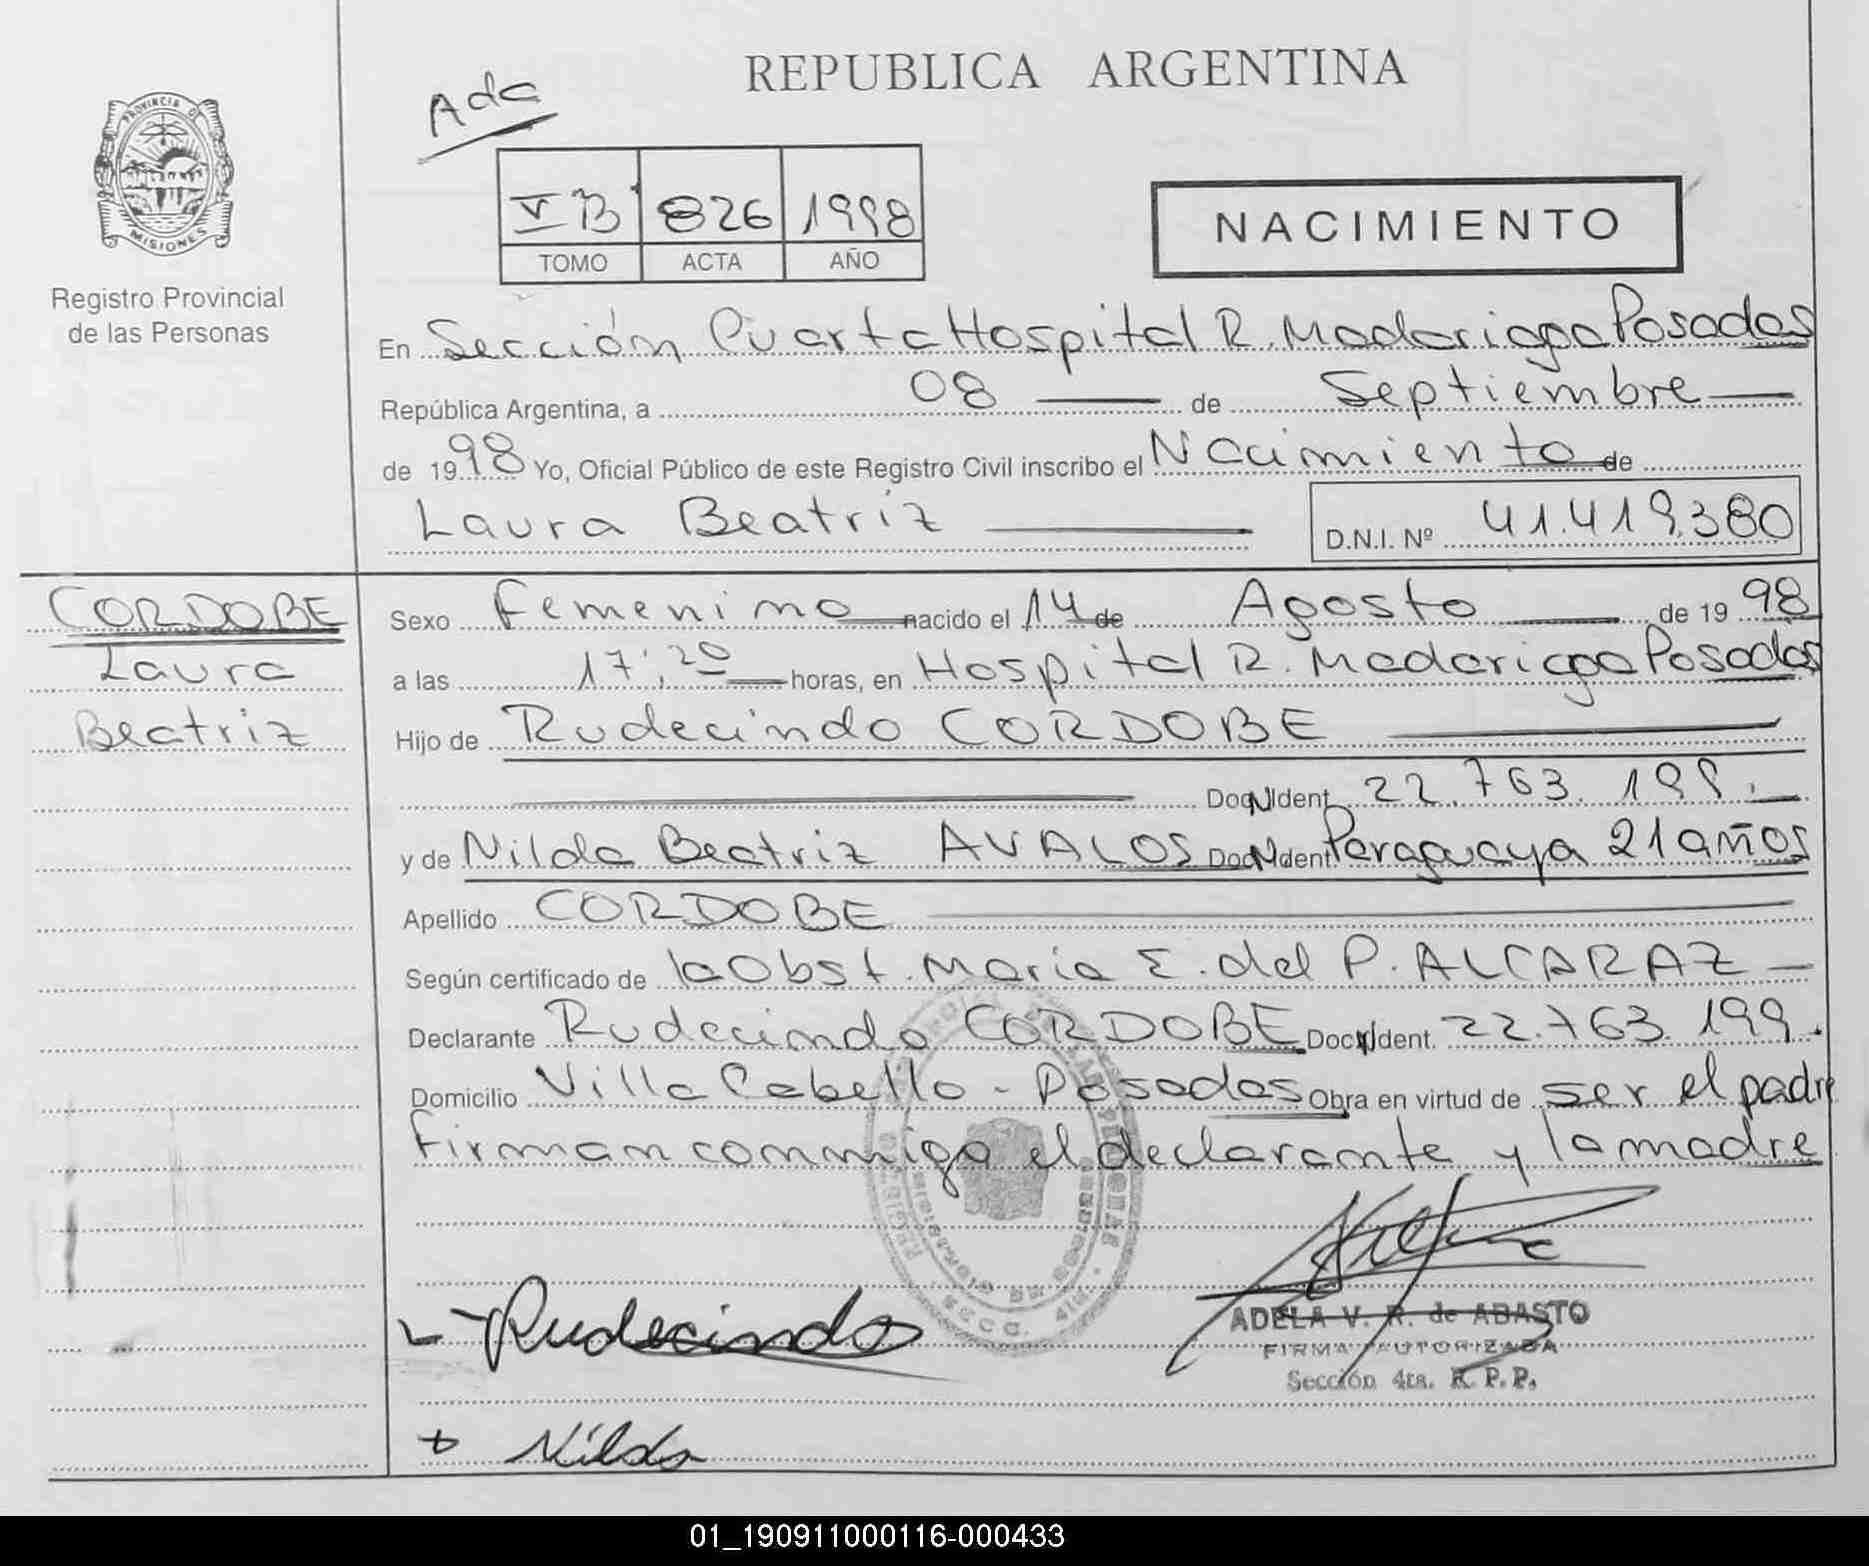 REPUBLICA ARGENTINA
Ada
PROVINCIA DE
MISIONES
Registro Provincial
de las Personas
V B 826 1998
TOMO ACTA AÑO
NACIMIENTO
En Sección Cuarta Hospital R. Madariaga Posadas
República Argentina, a 08 de Septiembre
de 19 98 Yo, Oficial Público de este Registro Civil inscribo el Nacimiento de
Laura Beatriz D.N.I. Nº 41.419.380
CORDOBE
Laura
Beatriz
Sexo Femenino nacido el 14 de Agosto de 19 98
a las 17:20 horas, en Hospital R. Madariaga Posadas
Hijo de Rudecindo CORDOBE
Doc. N Ident. 22.763.199.
y de Nilda Beatriz AVALOS Doc N Ident Paraguaya 21 años
Apellido CORDOBE
Según certificado de la Obst. Maria E. del P. ALCARAZ
Declarante Rudecindo CORDOBE Doc. N Ident. 22.763.199.
Domicilio Villa Cabello - Posadas Obra en virtud de ser el padre
Firman conmigo el declarante y la madre
Rudecindo
ADELA V. R. de ABASTO
FIRMA AUTORIZADA
Sección 4ta. R. P. P.
Nilda
01_190911000116-000433